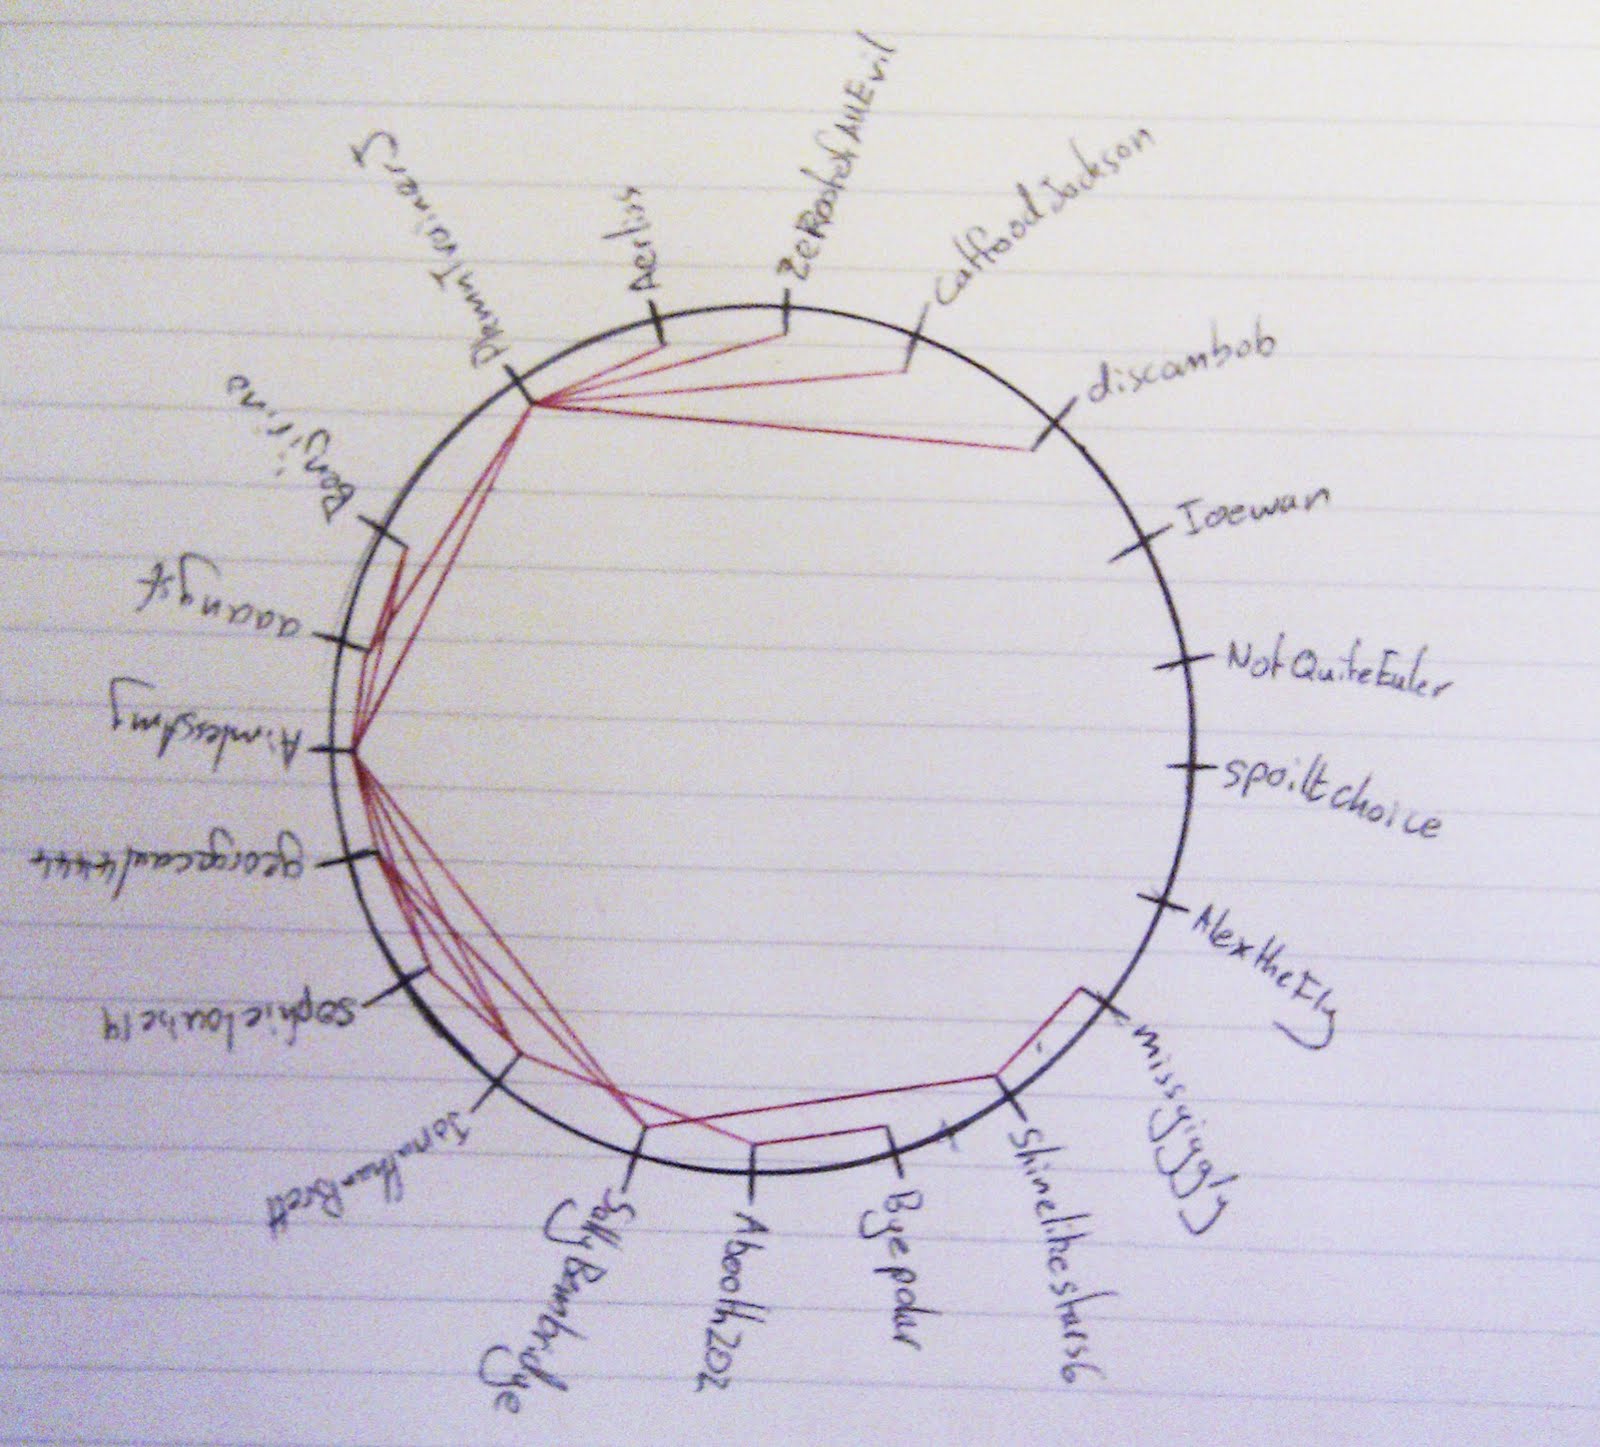 ZeRootofAllEvil
CatfoodJackson
discombob
Ioewan
NotQuiteEuler
spoiltchoice
AlextheFly
missgiggly
Shinelikestars6
Byepolar
Abooth202
SallyBembridge
JonathanBrett
sophielouise14
AimlessAmy
aaangst
Benjirino
PkmnTrainerJ
Aerliss